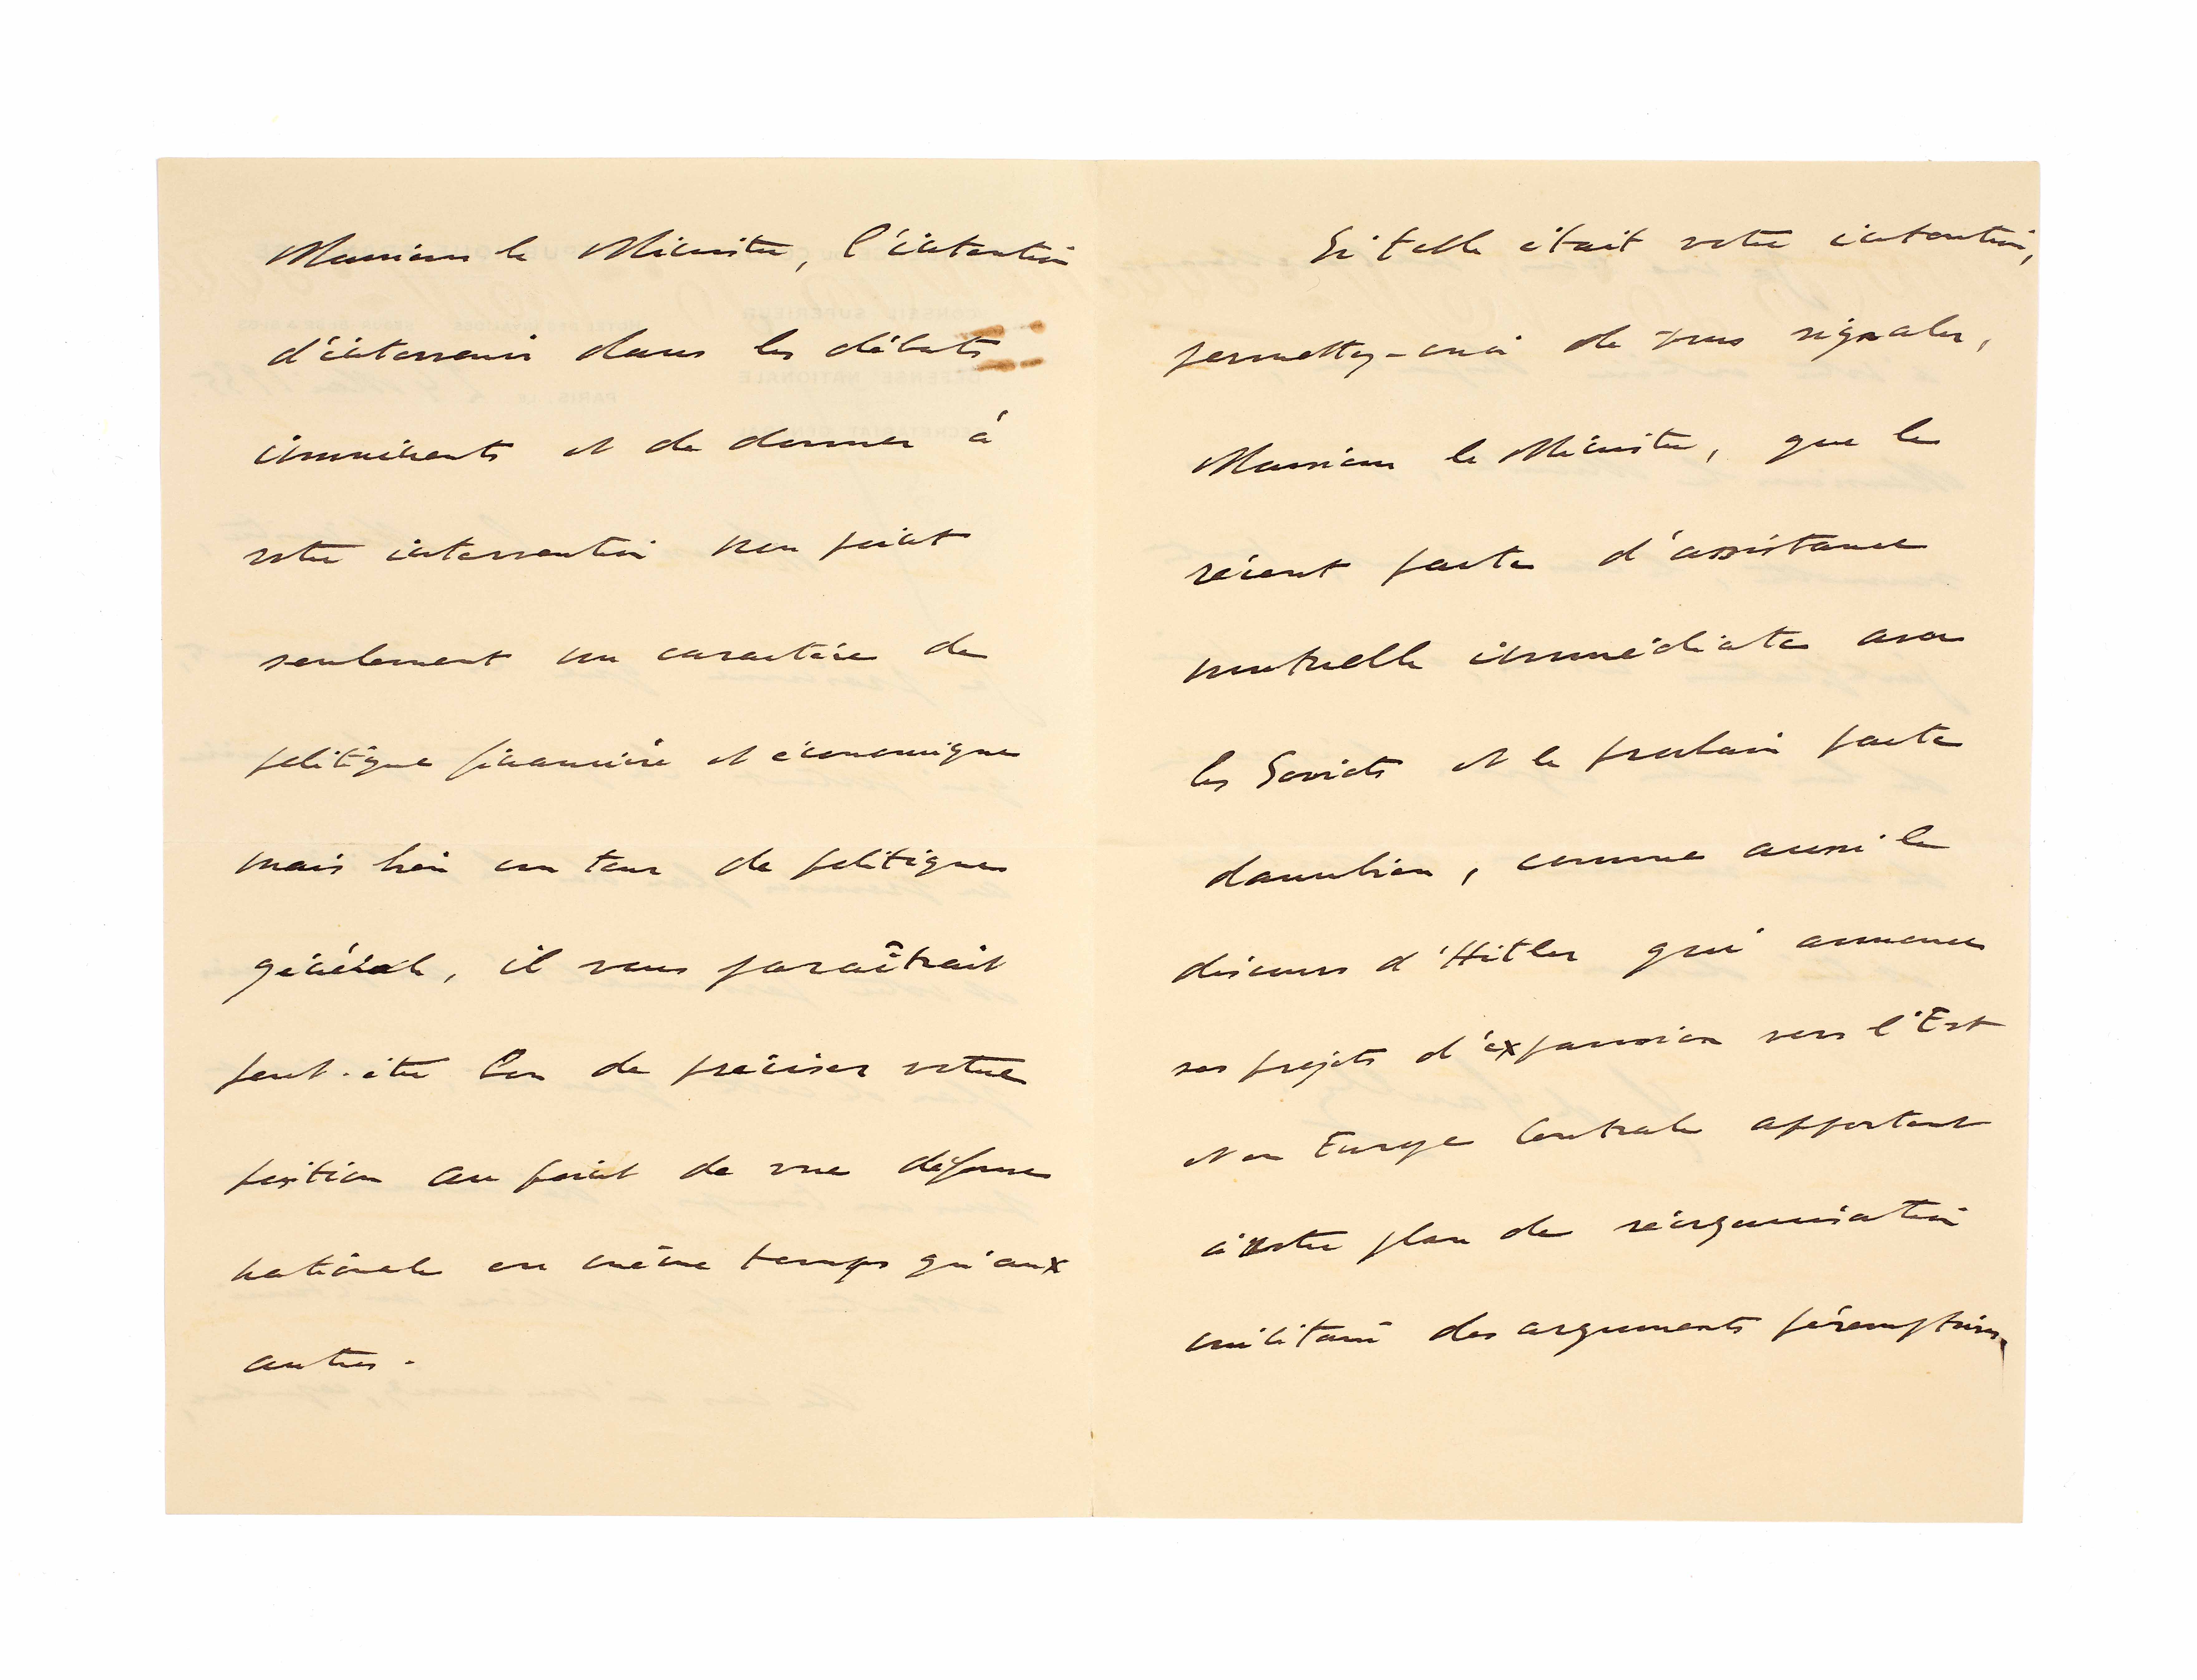 Monsieur le Ministre, l'intention
d'intervenir dans les débats
imminents et de donner à
votre intervention non point
seulement un caractère de
politique financière et économique
mais bien un tour de politique
générale, il vous paraîtrait
peut-être bon de préciser votre
position au point de vue défense
nationale en même temps qu'aux
autres.
Si telle était votre intention,
permettez-moi de vous signaler,
Monsieur le Ministre, que le
récent pacte d'assistance
mutuelle immédiate avec
les Soviets et le prochain pacte
danubien, comme aussi le
discours d'Hitler qui annonce
ses projets d'expansion vers l'Est
et en Europe Centrale apportent
à votre plan de réorganisation
militaire des arguments péremptoires.